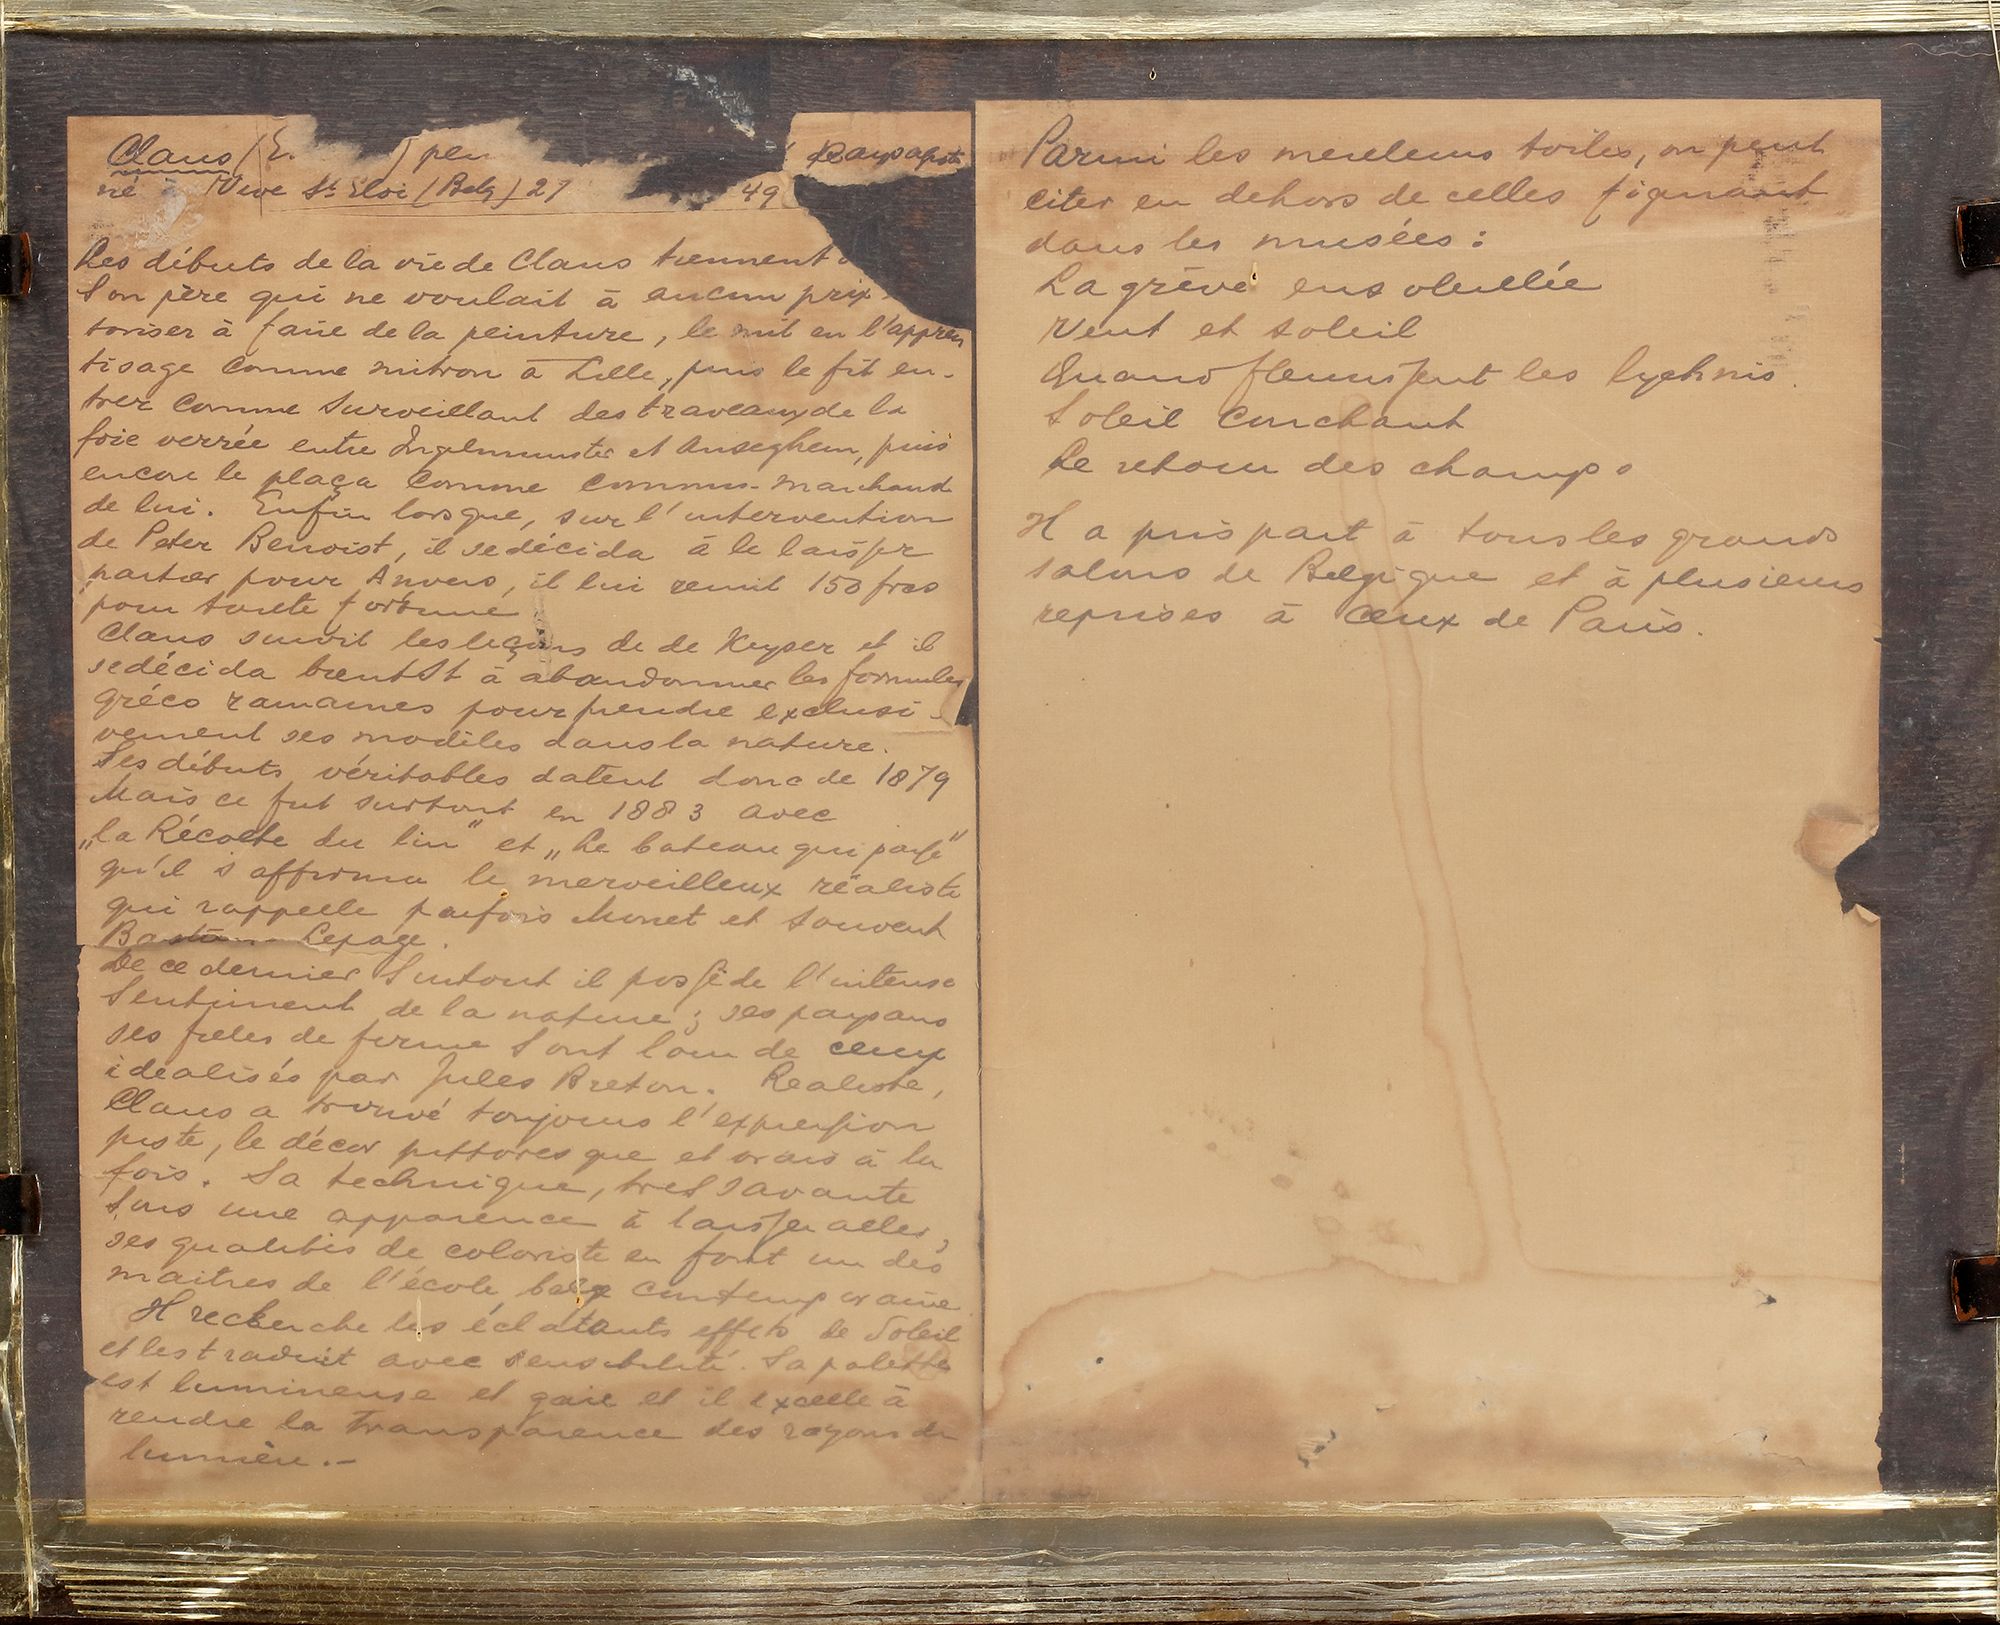 Claus (E. ) pein Paysagiste
né à Vive St Eloi (Belg) 27 49
Les débuts de la vie de Claus tiennent
Son père qui ne voulait à aucun prix
toriser à faire de la peinture, le mit en l'appren
tisage comme mitron à Lille, puis le fit en-
trer comme surveillant des travaux de la
foie verrée entre Ingelmunster et Anseghem, puis
encore le plaça comme commis-marchand
de lui. Enfin lorsque, sur l'intervention
de Peter Benoist, il se décida à le laisser
partir pour Anvers, il lui remit 150 frcs
pour toute fortune
Claus suivit les leçons de de Keyser et il
se décida bientôt à abandonner les formules
gréco romaines pour prendre exclusi-
vement ses modèles dans la nature.
Ses débuts véritables datent donc de 1879
Mais ce fut surtout en 1883 avec
„la Récolte du lin" et „Le bateau qui passe"
qu'il s'affirma le merveilleux réaliste
qui rappelle parfois Monet et souvent
Bastien Lepage.
De ce dernier surtout il possède l'intense
Sentiment de la nature; ses paysans
ses filles de ferme sont loin de ceux
idéalisés par Jules Breton. Realiste,
Claus a trouvé toujours l'expression
juste, le décor pittoresque et vrais à la
fois. Sa technique, très savante
sous une apparence à laisser aller,
ses qualités de coloriste en font un des
maitres de l'école belge contemporaine
Il recherche les éclatants effets de Soleil
et les traduit avec sensibilité. Sa palette
est lumineuse et gaie et il excelle à
rendre la transparence des rayons de
lumière.-
Parmi les meilleurs toiles, on peut
citer en dehors de celles figurant
dans les musées :
La grève ensoleillée
Vent et soleil
Quand fleurissent les lychnis.
Soleil couchant
Le retour des champs
Il a pris part à tous les grands
salons de Belgique et à plusieurs
reprises à ceux de Paris.